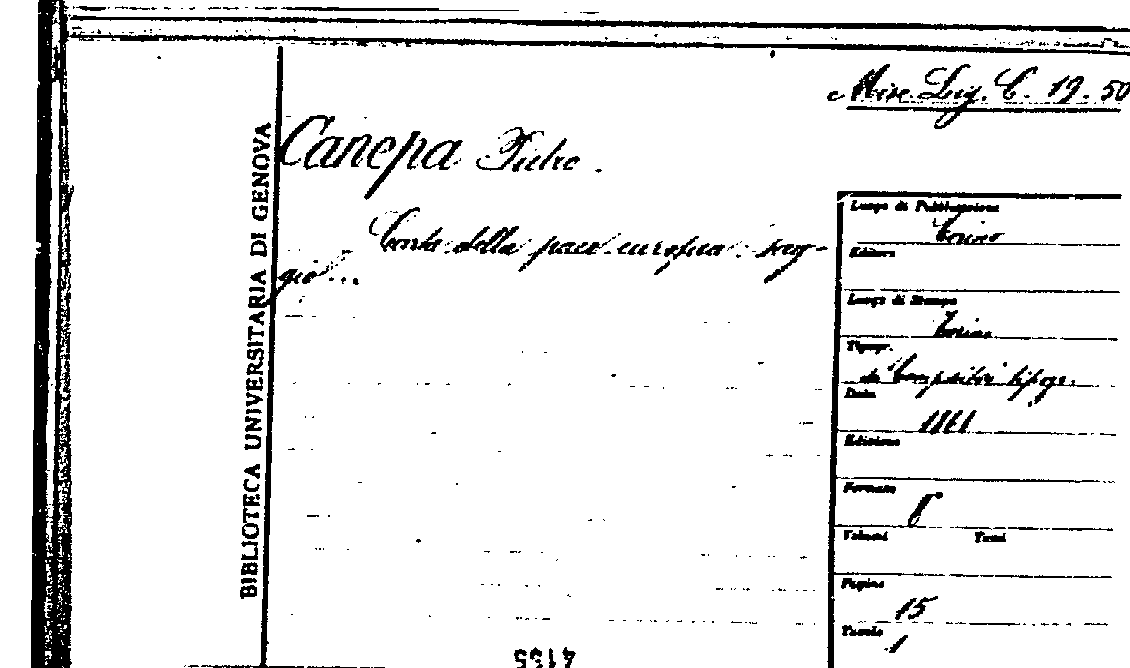 Misc. Lig. C. 19. 50
BIBLIOTECA UNIVERSITARIA DI GENOVA
Canepa Pietro.
Carta della pace europea: sag-
gio...
Luogo di Pubblicazione
Torino
Editore
Luogo di Stampa
Torino
Tipogr.
Compositori tipogr.
Data
1861
Edizione
Formato
8°
Volumi Tomi
Pagine
15
Tavole
1